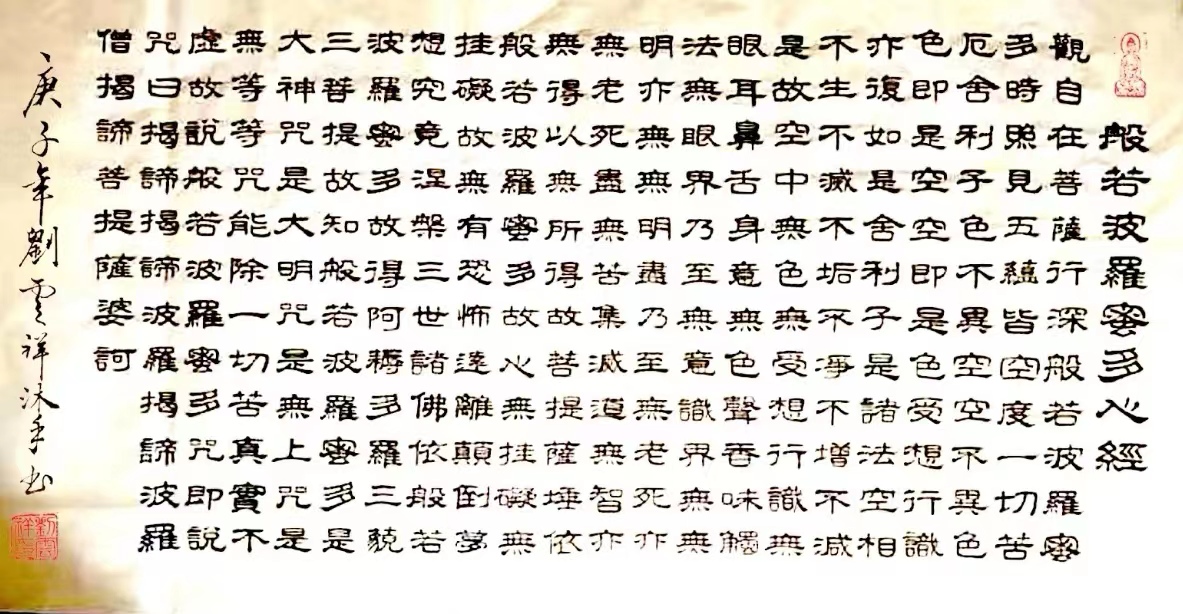 般若波羅蜜多心經
觀自在菩薩行深般若波羅蜜
多時照見五蘊皆空度一切苦
厄舍利子色不異空空不異色
色即是空空即是色受想行識
亦復如是舍利子是諸法空相
不生不滅不垢不淨不增不減
是故空中無色無受想行識無
眼耳鼻舌身意無色聲香味觸
法無眼界乃至無意識界無無
明亦無無明盡乃至無老死亦
無老死盡無苦集滅道無智亦
無得以無所得故菩提薩埵依
般若波羅蜜多故心無挂礙無
挂礙故無有恐怖遠離顛倒夢
想究竟涅槃三世諸佛依般若
波羅蜜多故得阿耨多羅三藐
三菩提故知般若波羅蜜多是
大神咒是大明咒是無上咒是
無等等咒能除一切苦真實不
虛故說般若波羅蜜多咒即說
咒曰揭諦揭諦波羅揭諦波羅
僧揭諦菩提薩婆訶
庚子年劉雲祥沐手书